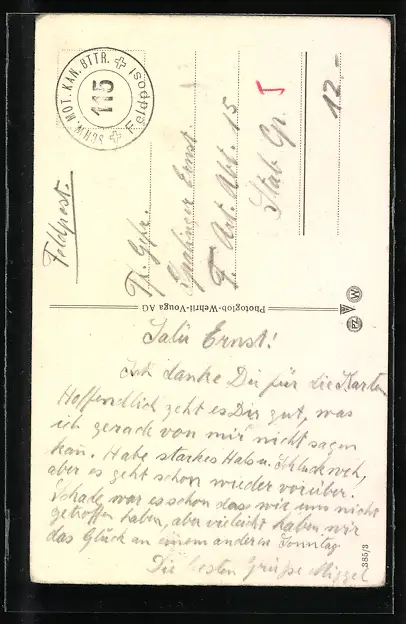 SCHW. MOT. KAN. BTTR.
115
Feldpost
Feldpost.
12.-
Tf. Gefr.
Ernst
F. Art. Abt. 15
Stab Gr.
Photoglob-Wehrli-Vouga AG
PZ
W
Salü Ernst!
Ich danke Dir für die Karten
Hoffendlich geht es Dir gut, was
ich gerade von mir nicht sagen
kañ. Habe starkes Hals u. Schluckweh,
aber es geht schon wieder vorüber.
Schade war es schon dass wir uns nicht
getroffen haben, aber vieleicht haben wir
das Glück an einem anderen Sonntag
Die besten Grüsse
385/3